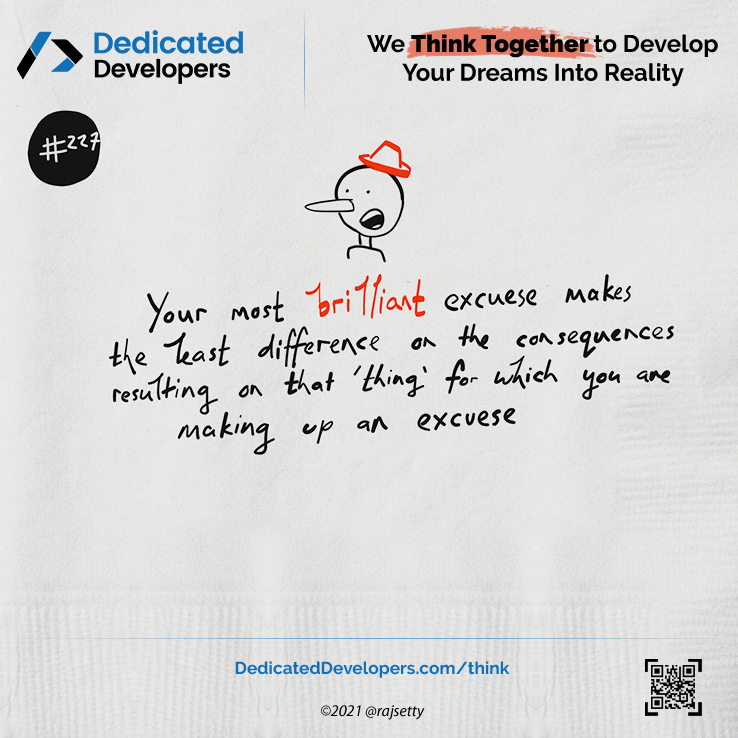 Dedicated
Developers
We Think Together to Develop
Your Dreams Into Reality
#227
Your most brilliant excuese makes
the least difference on the consequences
resulting on that 'thing' for which you are
making up an excuese
DedicatedDevelopers.com/think
©2021 @rajsetty